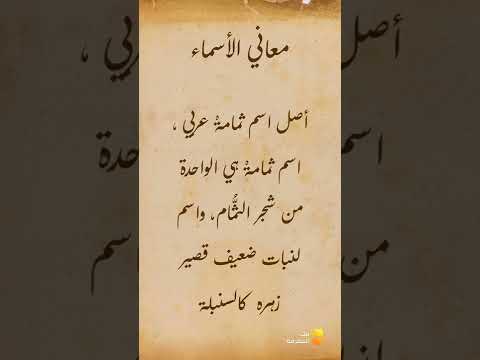 معاني الأسماء
أصل اسم ثمامةْ عربي ،
اسم ثمامةْ هي الواحدة
من شجر الثُّمام، واسم
لنبات ضعيف قصير
زهره كالسنبلة